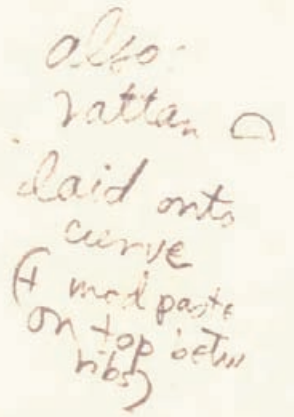 also
rattan
laid onto
curve
(+ mod paste
on top betw
ribs)